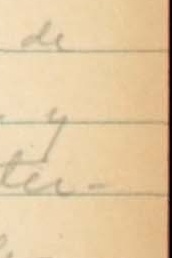 de
y
ter-